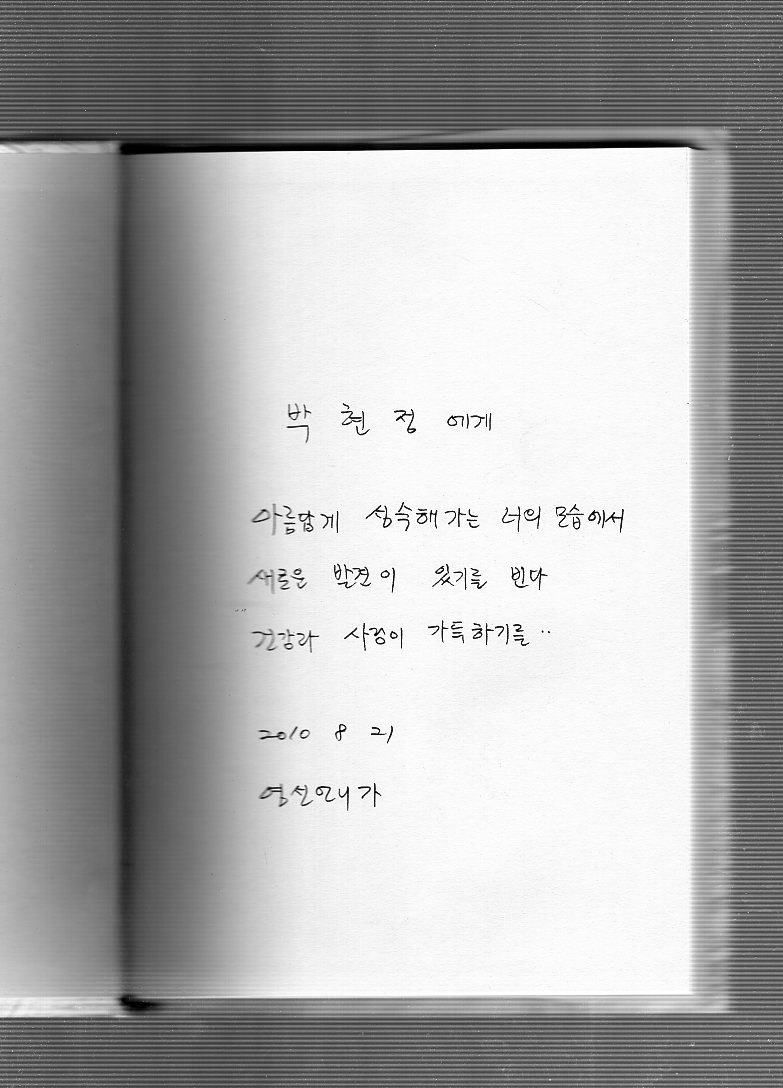 박 현 정 에게
아름답게 성숙해 가는 너의 모습에서
새로운 발견이 있기를 빈다
건강과 사랑이 가득하기를 ..
2010 8 21
영선언니가